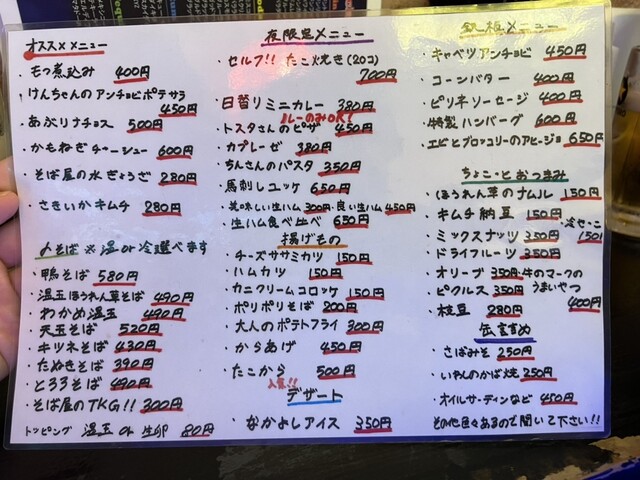 オススメメニュー
・もつ煮込み 400円
・けんちゃんのアンチョビポテサラ
450円
・あぶりナチョス 500円
・かもねぎチャーシュー 600円
・そば屋の水ぎょうざ 280円
・さきいかキムチ 280円
〆そば ※温or冷選べます
・鴨そば 580円
・温玉ほうれん草そば 490円
・わかめ温玉 490円
・天玉そば 520円
・キツネそば 430円
・たぬきそば 390円
・とろろそば 490円
・そば屋のTKG!! 300円
トッピング 温玉 or 生卵 80円
夜限定メニュー
・セルフ!! たこ焼き(20コ)
700円
・日替りミニカレー 380円
ルーのみOK!
・トスタさんのピザ 450円
・カプレーゼ 380円
・ちんさんのパスタ 350円
・馬刺しユッケ 650円
・美味しい生ハム 300円・良い生ハム 450円
・生ハム食べ比べ 650円
揚げもの
・チーズササミカツ 150円
・ハムカツ 150円
・カニクリームコロッケ 150円
・ポリポリそば 200円
・大人のポテトフライ 300円
・からあげ 450円
・たこから 500円
人気!!
デザート
・なかよしアイス 350円
鉄板メニュー
・キャベツアンチョビ 450円
・コーンバター 400円
・ピリ辛ソーセージ 400円
・特製ハンバーグ 600円
・エビとブロッコリーのアヒージョ 650円
ちょこっとおつまみ
・ほうれん草のナムル 150円
・キムチ納豆 150円
・ミックスナッツ 350円
150円
・ドライフルーツ 350円
・オリーブ 350円
・牛のマークの
うまいやつ
400円
・ピクルス 350円
・枝豆 280円
缶詰め
・さばみそ 250円
・いわしのかば焼 250円
・オイルサーディンなど 450円
その他色々あるので聞いて下さい!!